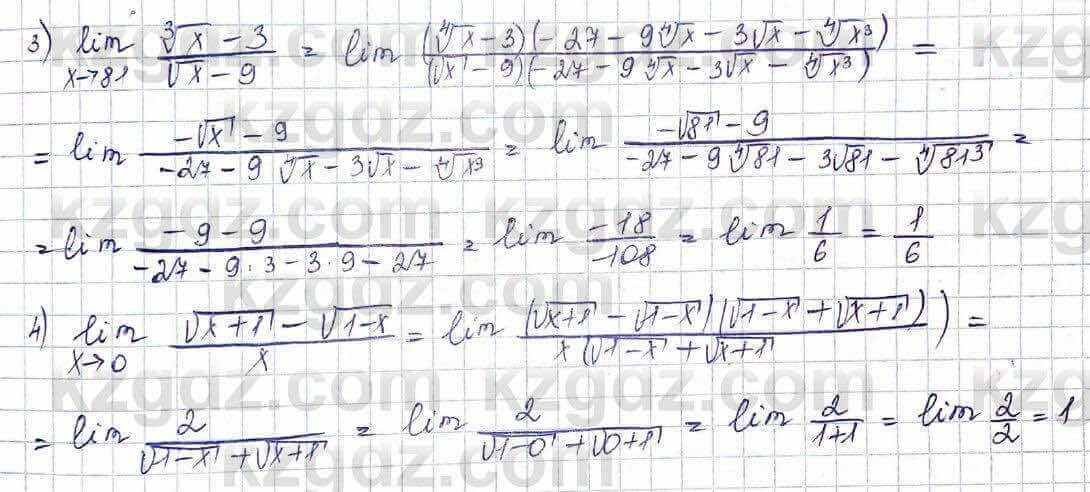 3) lim x→81 (∛x - 3)/(√x - 9) = lim ((∜x - 3)(-27 - 9∜x - 3√x - ∜x³))/((√x - 9)(-27 - 9∜x - 3√x - ∜x³)) =
= lim (-√x - 9)/(-27 - 9∜x - 3√x - ∜x³) = lim (-√81 - 9)/(-27 - 9∜81 - 3√81 - ∜81³) =
= lim (-9 - 9)/(-27 - 9·3 - 3·9 - 27) = lim -18/-108 = lim 1/6 = 1/6
4) lim x→0 (√x+1 - √1-x)/x = lim ((√x+1 - √1-x)(√1-x + √x+1))/(x(√1-x + √x+1)) =
= lim 2/(√1-x + √x+1) = lim 2/(√1-0 + √0+1) = lim 2/(1+1) = lim 2/2 = 1
kzgdz.com